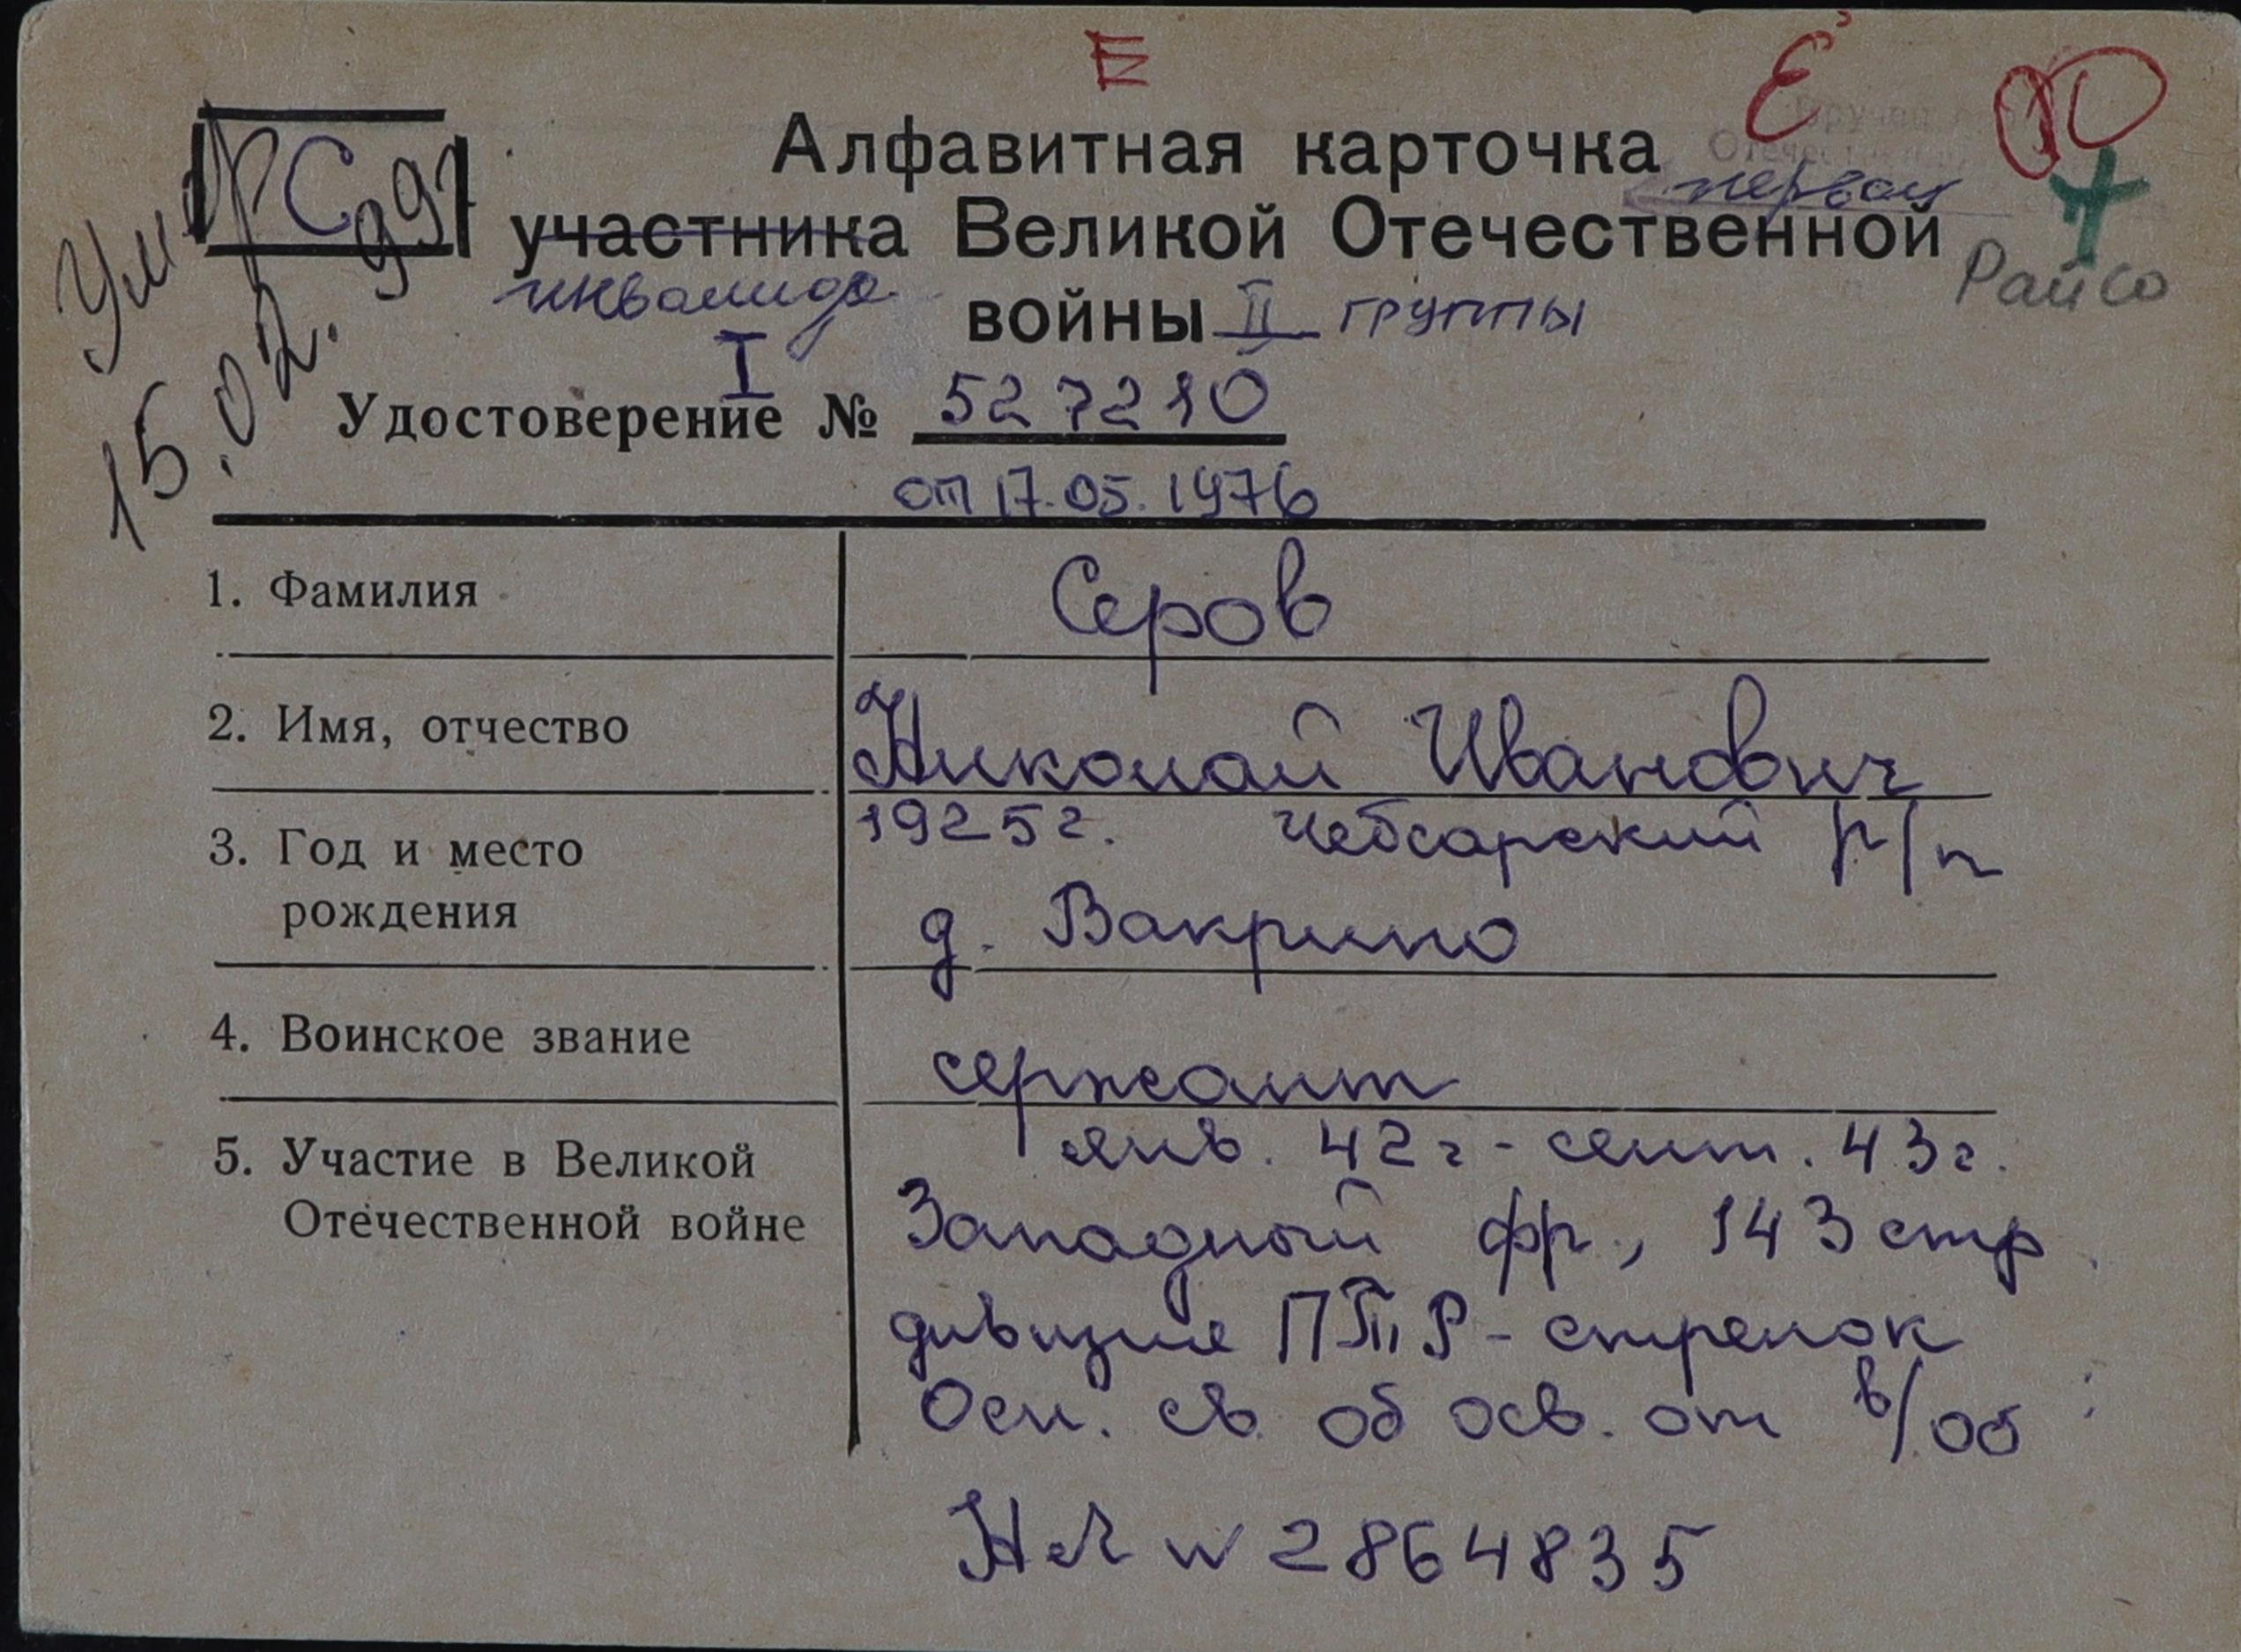 Е
Е
Умер С
15.02.99
Алфавитная карточка
Вручен
Отечественной
первой
участника Великой Отечественной
Райсо
инвалида войны II группы
I
Удостоверение № 527210
от 17.05.1976
1. Фамилия Серов
2. Имя, отчество Николай Иванович
3. Год и место 1925г. Чебсарский р/н
рождения д. Вакрино
4. Воинское звание сержант
5. Участие в Великой янв. 42г - сент. 43г.
Отечественной войне Западный фр., 143 стр
дивизия ПТР - стрелок
Осн. св. об осв. от в/об
НЛ № 2864835